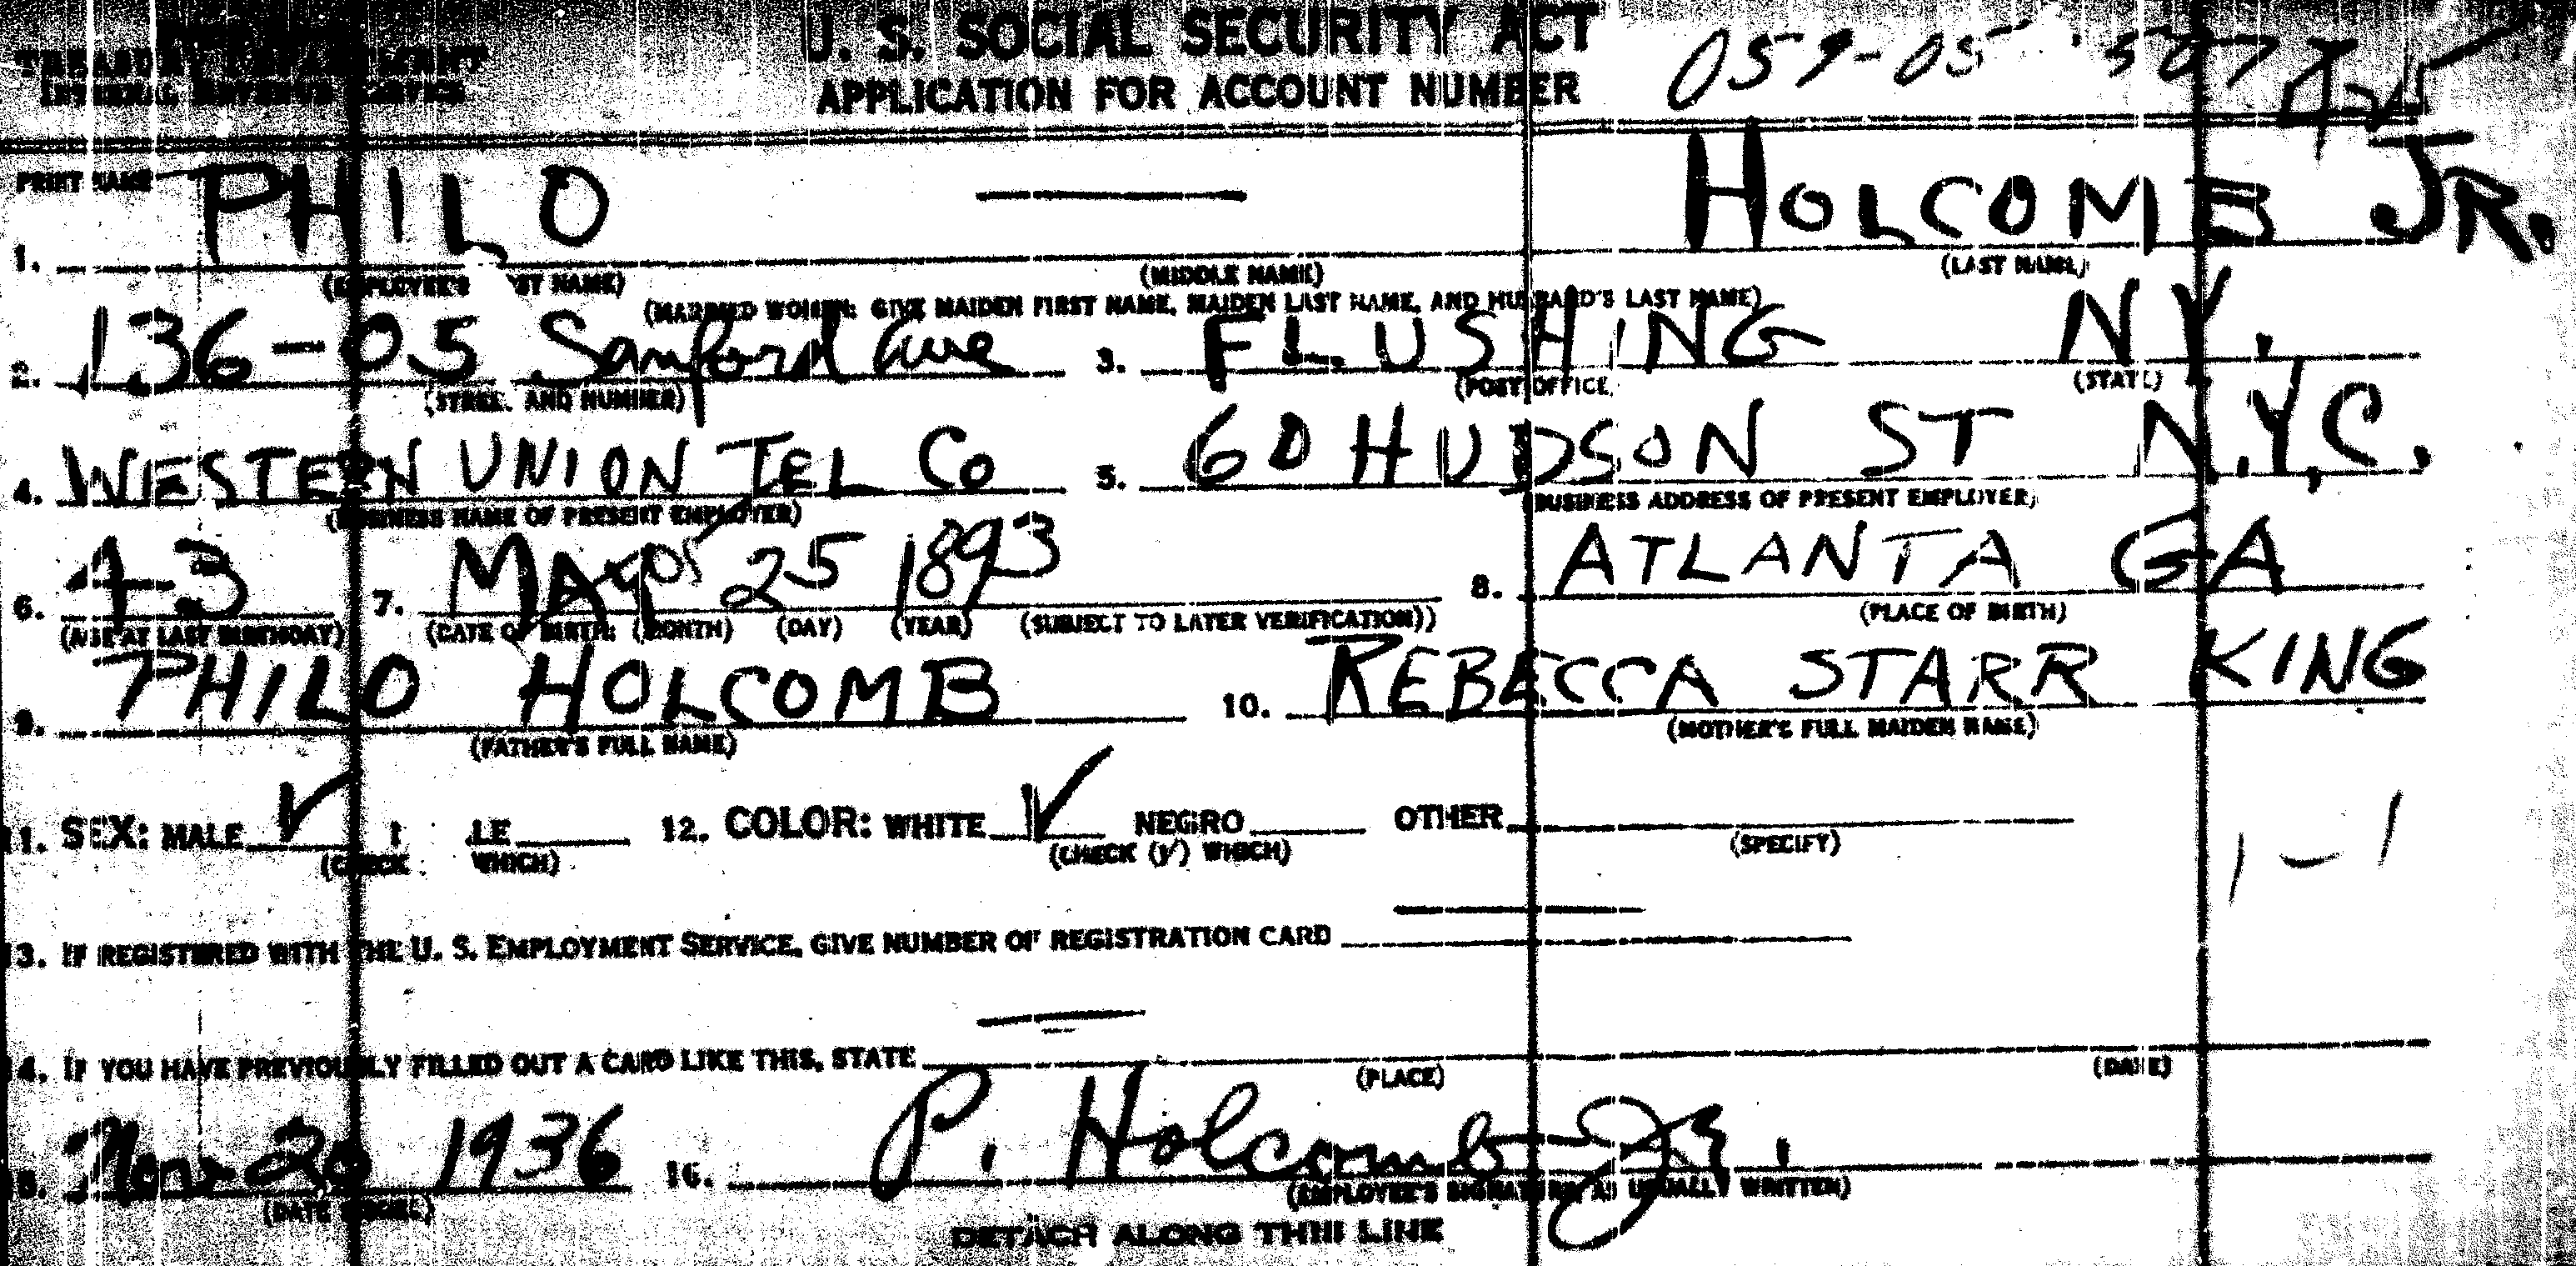 TREASURY DEPARTMENT
INTERNAL REVENUE SERVICE
U. S. SOCIAL SECURITY ACT
APPLICATION FOR ACCOUNT NUMBER
059-05-5077
PRINT NAME
1. PHILO — HOLCOMB JR.
(EMPLOYEE'S FIRST NAME) (MIDDLE NAME) (LAST NAME)
(MARRIED WOMEN: GIVE MAIDEN FIRST NAME, MAIDEN LAST NAME, AND HUSBAND'S LAST NAME)
2. 136-05 Sanford Ave 3. FLUSHING N.Y.
(STREET AND NUMBER) (POST OFFICE) (STATE)
4. WESTERN UNION TEL Co 5. 60 HUDSON ST N.Y.C.
(BUSINESS NAME OF PRESENT EMPLOYER) (BUSINESS ADDRESS OF PRESENT EMPLOYER)
6. 43 7. MAY 25 1893 8. ATLANTA GA
(AGE AT LAST BIRTHDAY) (DATE OF BIRTH: (MONTH) (DAY) (YEAR) (SUBJECT TO LATER VERIFICATION)) (PLACE OF BIRTH)
9. PHILO HOLCOMB 10. REBECCA STARR KING
(FATHER'S FULL NAME) (MOTHER'S FULL MAIDEN NAME)
11. SEX: MALE ✓ LE 12. COLOR: WHITE ✓ NEGRO OTHER
(CHECK WHICH) (CHECK (✓) WHICH) (SPECIFY)
1-1
13. IF REGISTERED WITH THE U. S. EMPLOYMENT SERVICE, GIVE NUMBER OF REGISTRATION CARD —
14. IF YOU HAVE PREVIOUSLY FILLED OUT A CARD LIKE THIS, STATE —
(PLACE) (DATE)
15. Nov 20 1936 16. P. Holcomb Jr.
(DATE SIGNED) (EMPLOYEE'S SIGNATURE, AS USUALLY WRITTEN)
DETACH ALONG THIS LINE